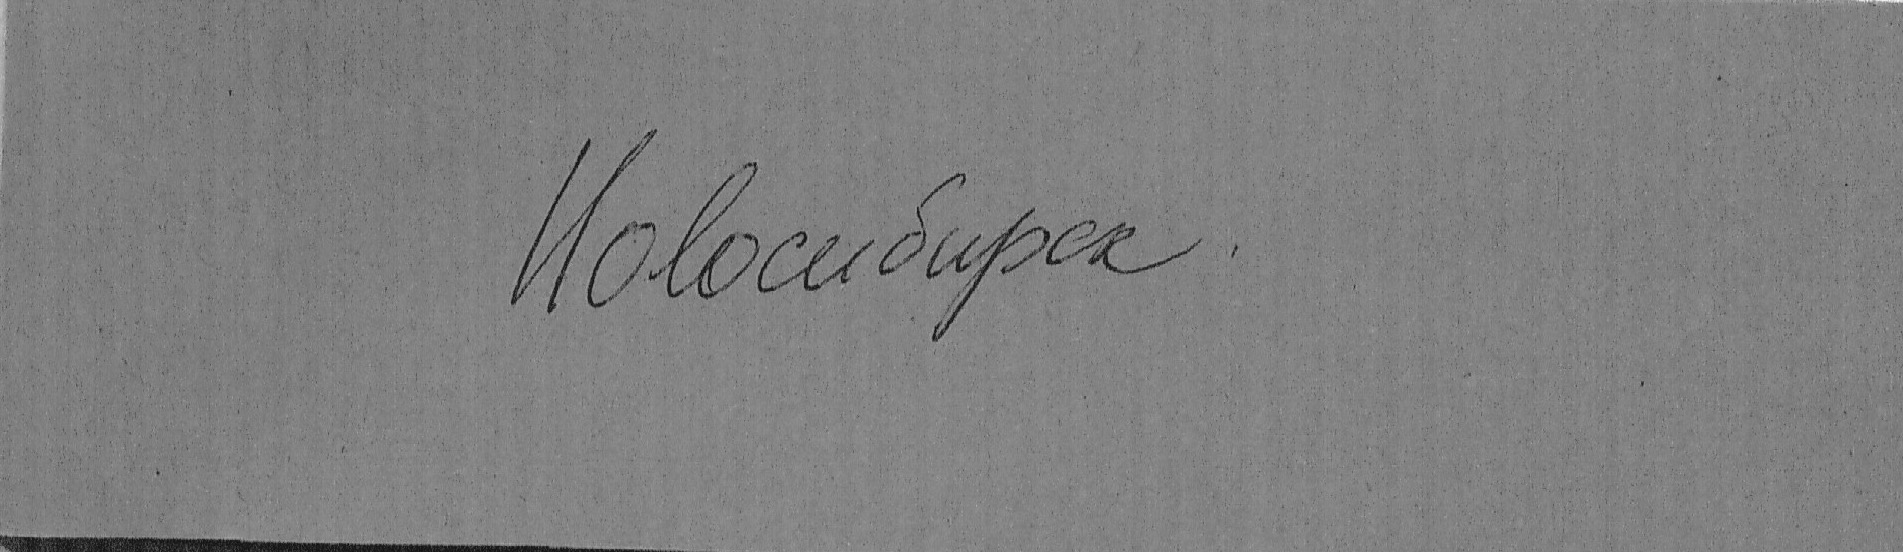 Новосибирск.